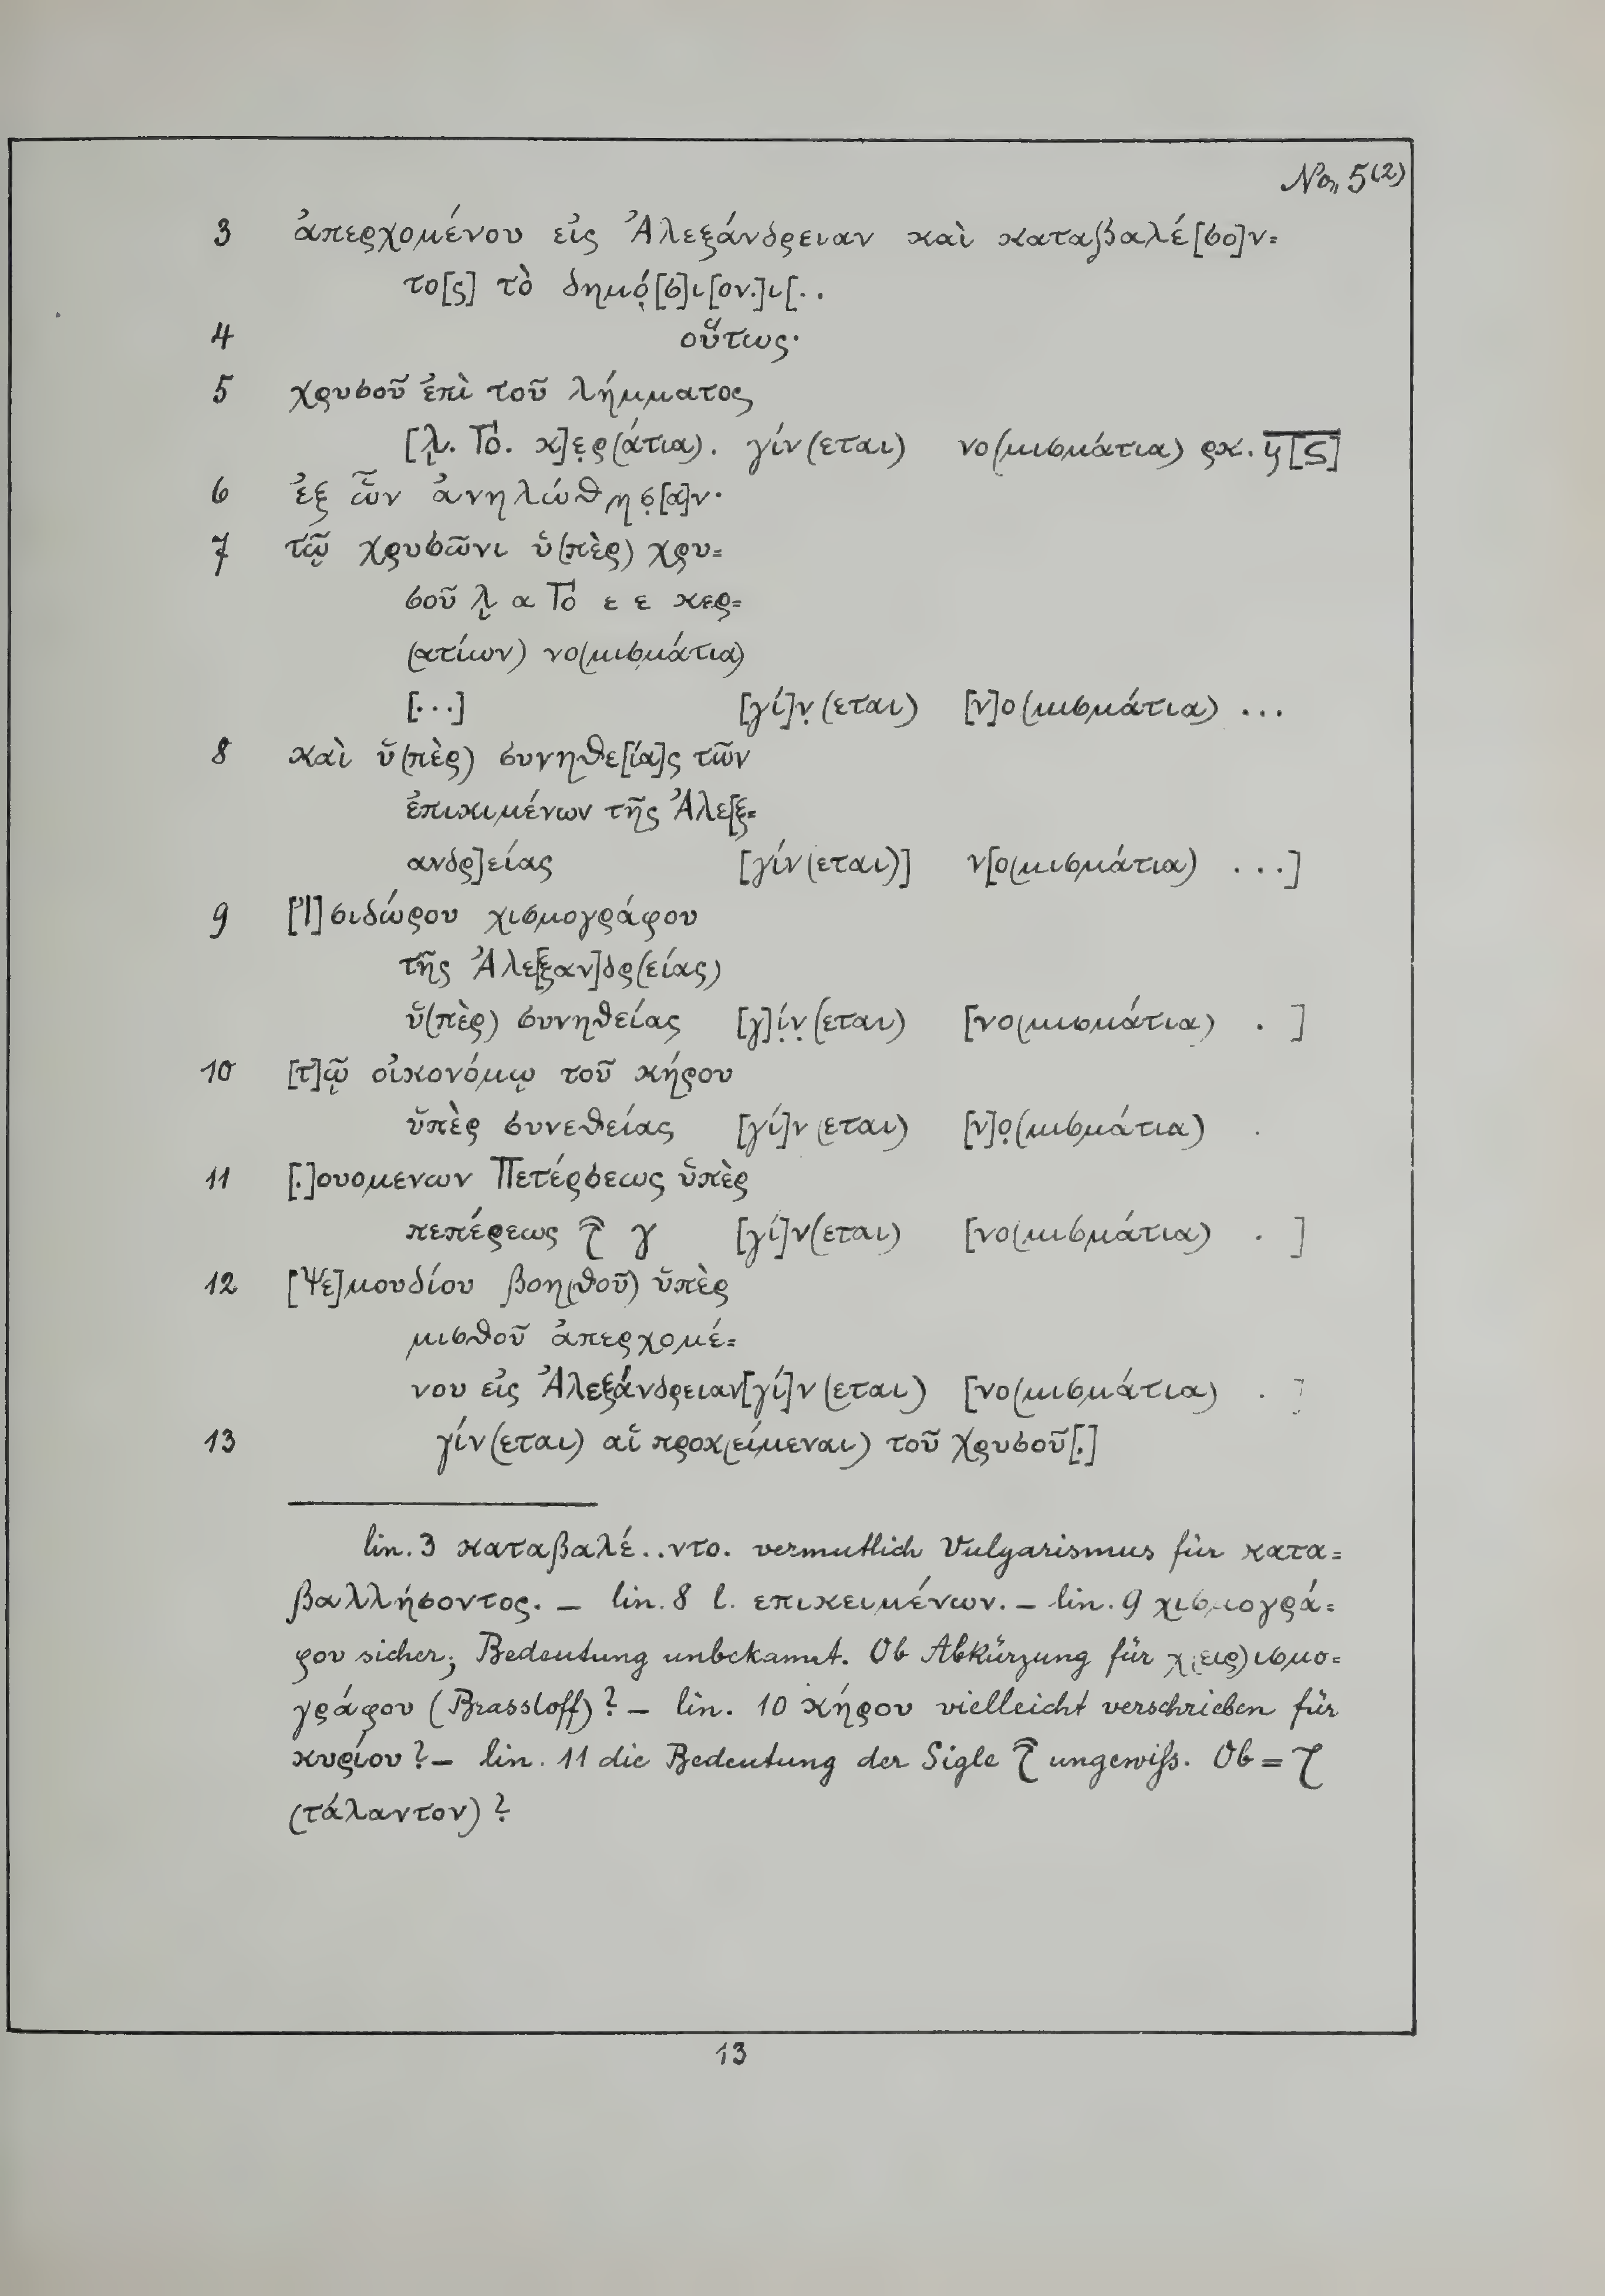 No. 5(2)
3 ἀπερχομένου εἰς Ἀλεξάνδρειαν καὶ καταβαλέ[σο]ν=
το[ς] τὸ δημό̣[σ]ι[ον.]ι[..
4 οὕτως·
5 χρυσοῦ ἐπὶ τοῦ λήμματος
[λ̣. Γό. κ]ε̣ρ(άτια). γίν(εται) νο(μισμάτια) ρκ. [ς]
6 ἐξ ὧν ἀνηλώθησ̣[α]ν·
7 τῷ χρυσῶνι ὑ(πὲρ) χρυ=
σοῦ λ̣ α Γό ε ε κερ=
(ατίων) νο(μισμάτια)
[...] [γί]ν̣(εται) [ν]ο(μισμάτια) ...
8 καὶ ὑ(πὲρ) συνηθε[ία]ς τῶν
ἐπικιμένων τῆς Ἀλε[ξ=
ανδρ]είας [γίν(εται)] ν[ο(μισμάτια) ...]
9 [Ἰ]σιδώρου χισμογράφου
τῆς Ἀλε[ξαν]δρ(είας)
ὑ(πὲρ) συνηθείας [γ]ί̣ν̣(εται) [νο(μισμάτια) . ]
10 [τ]ῷ οἰκονόμῳ τοῦ κήρου
ὑπὲρ συνεθείας [γί]ν(εται) [ν]ο̣(μισμάτια) .
11 [.]ουομενων Πετέρσεως ὑπὲρ
πεπέρεως γ [γί]ν(εται) [νο(μισμάτια) . ]
12 [Ψε]μουδίου βοη(θοῦ) ὑπὲρ
μισθοῦ ἀπερχομέ=
νου εἰς Ἀλεξάνδρειαν[γί]ν(εται) [νο(μισμάτια) . ]
13 γίν(εται) αἱ προκ(είμεναι) τοῦ χρυσοῦ[.]
lin. 3 καταβαλέ..ντο. vermutlich Vulgarismus für κατα=
βαλλήσοντος. – lin. 8 l. επικειμένων. – lin. 9 χισμογρά=
φου sicher; Bedeutung unbekannt. Ob Abkürzung für χ(ειρ)ισμο=
γράφου (Brassloff)? – lin. 10 κήρου vielleicht verschrieben für
κυρίου? – lin. 11 die Bedeutung der Sigle ungewiſs. Ob =
(τάλαντον)?
13